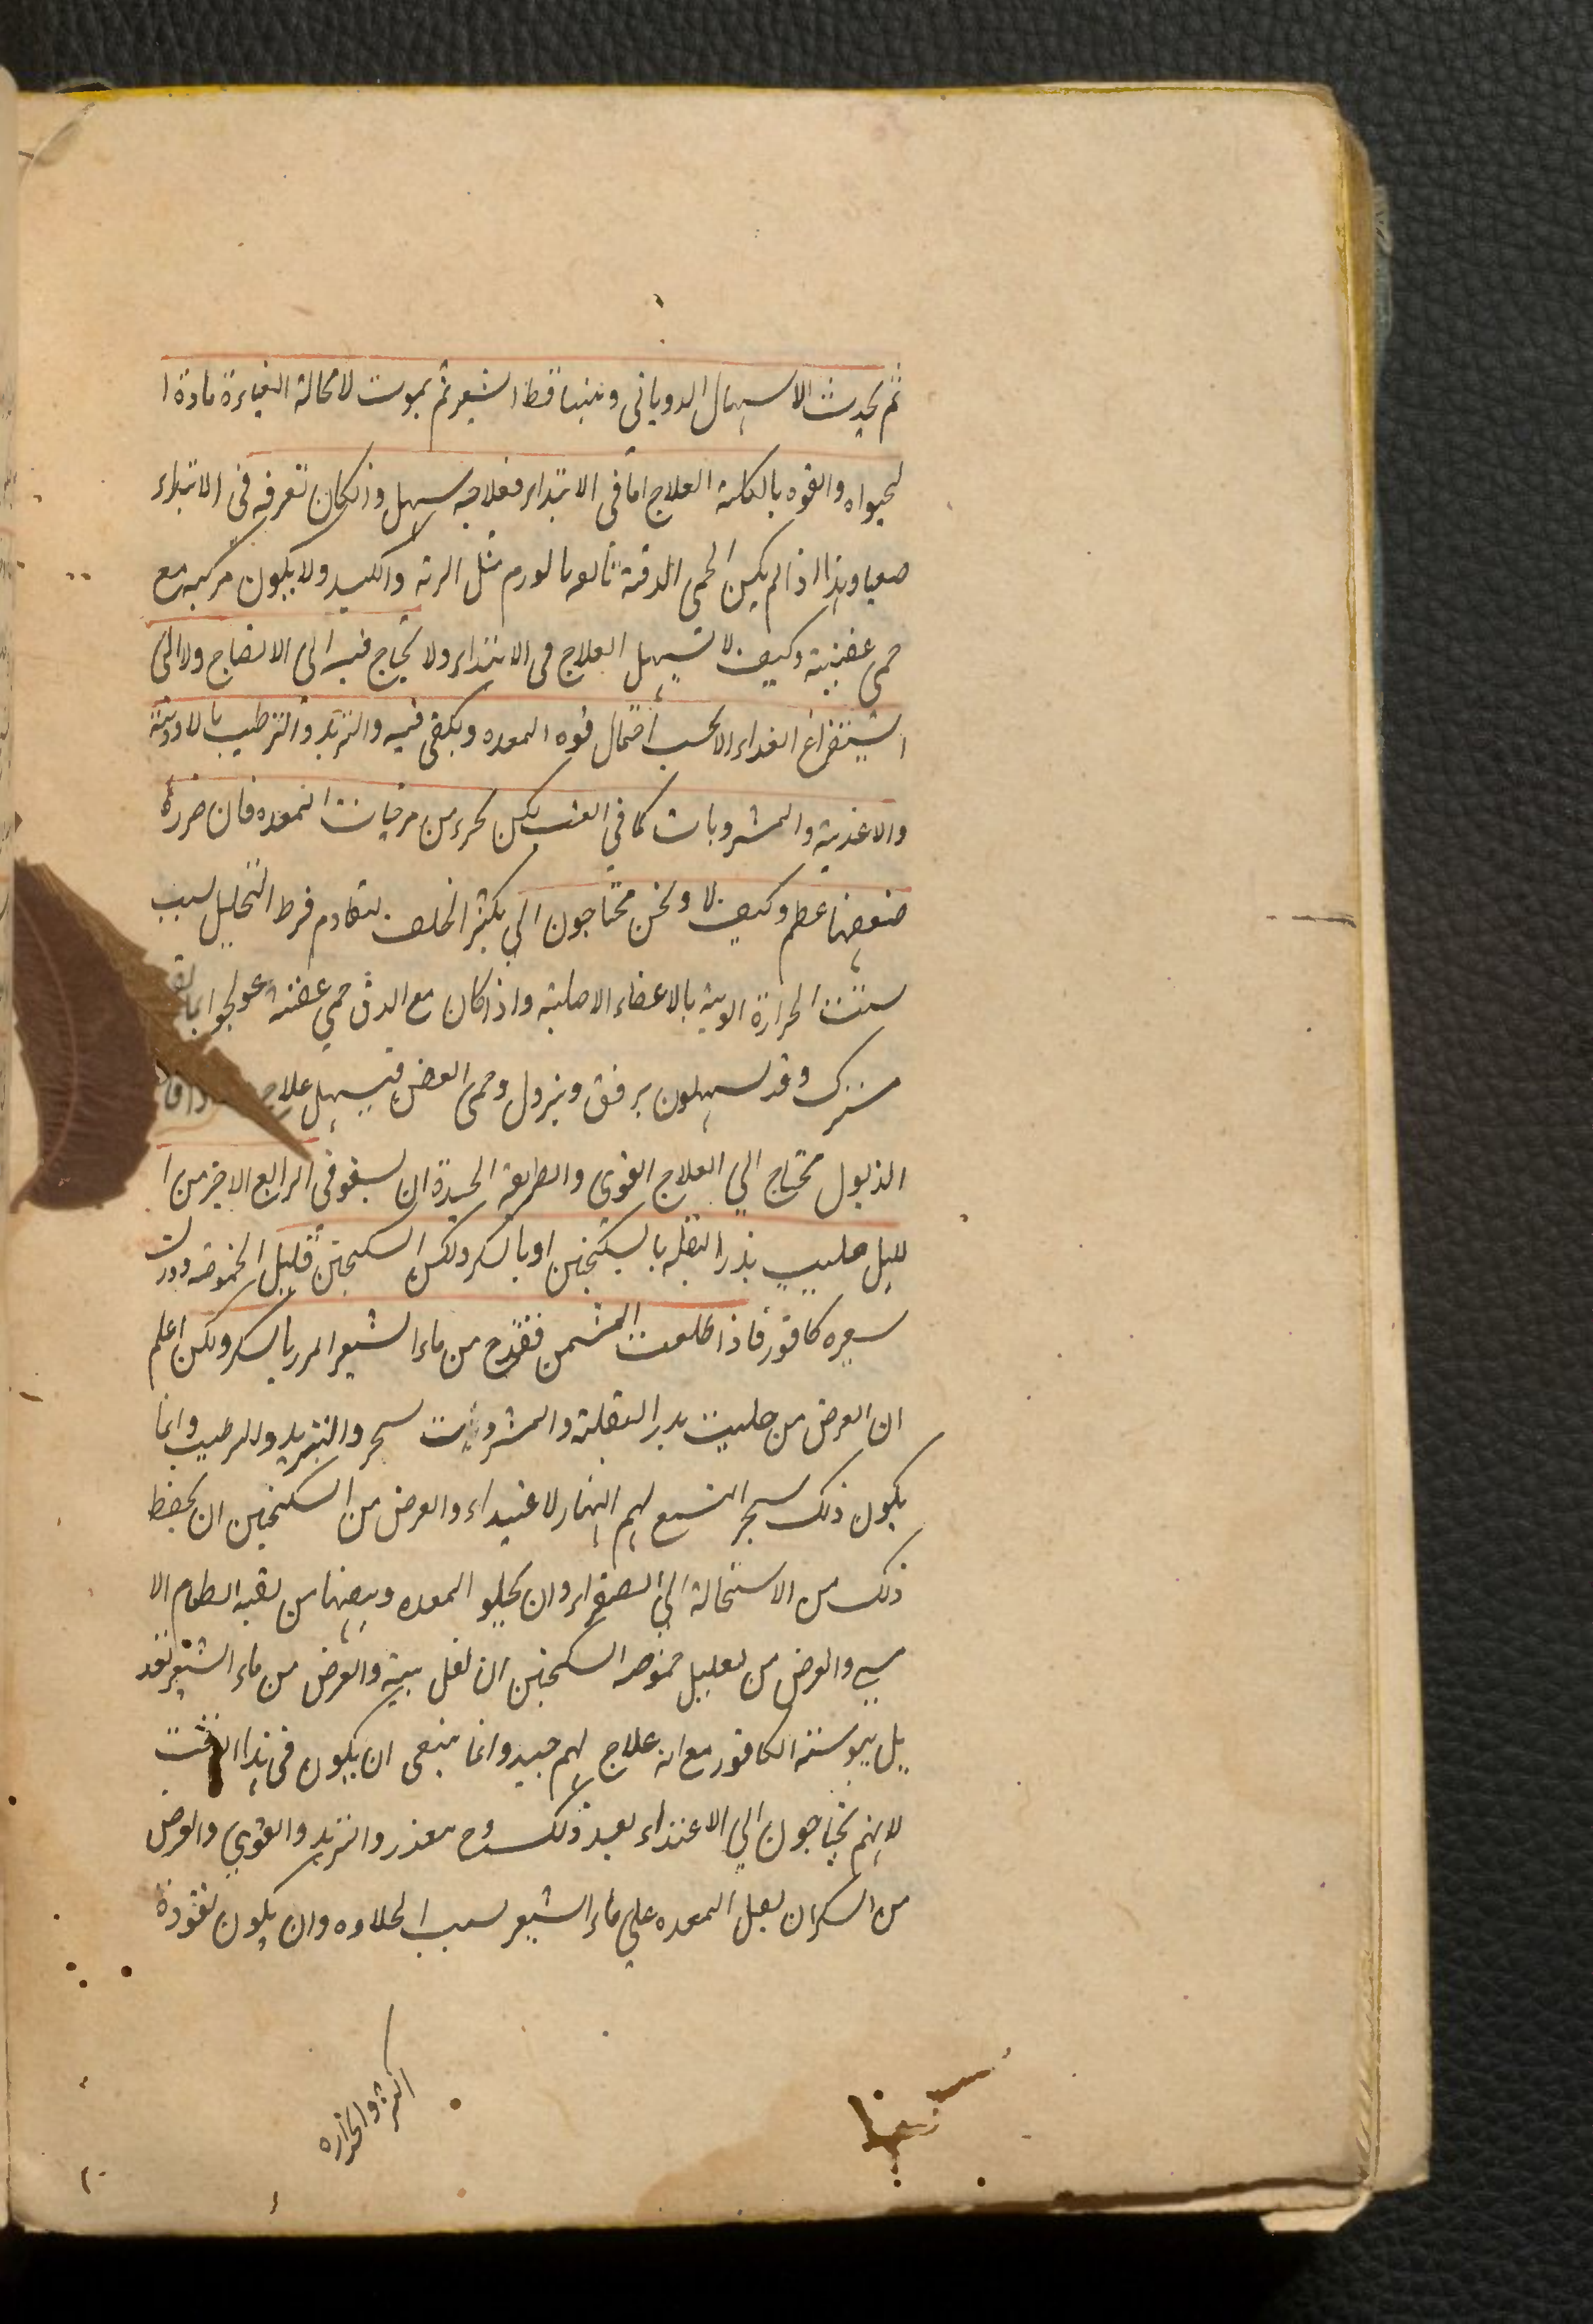 ثم يحدث الاسهال الذوبانى ويتساقط الشعر ثم يموت لا محالة مادة ا
لحيواه والقوه بالكلية العلاج اما فى الابتداء فعلاجه سهل وانكان تعرفه فى الابتداء
صعبا وهذا اذا لم يكن الحمى الدقية تابعه بالورم مثل الرئه والكبد ولا يكون مركبه مع
حمى عفنية وكيف لا تسهل العلاج فى الابتداء ولا يحتاج فيه الى الانضاج ولا الى
استفراغ الغداء الا بحسب احتمال قوه المعده ويكفى فيه والتبريد والترطيب بالادوية
والاغذية والمشروبات كما فى الغب لكن تحرز من مرخيات المعده فان ضررها
ضعفها عظم وكيف لا ونحن محتاجون الي تكثير الخلف ليقاوم فرط التحليل لسبب
الحرارة الغريبة بالاعضاء الاصلية واذا كان مع الدق حمى عفنة عولجوا بما
وقد يسهلون برفق ويزول وحمى العفن فيسهل علاج
الذبول محتاج الي العلاج القوى والطريقة الجيدة ان يسقوا فى الرابع الاخير من ا
لليل حليب بذر البقله بالسكنجبين او بالسكر ولكن السكنجبين قليل الحموضه
شعيره كافور فاذا طلعت الشمس فقدح من ماء الشعير المر بالسكر ولكن اعلم
ان الغرض من حليب بذر البقلة والمشروبات سحر والتبريد والترطيب وانما
يكون ذلك سحر اليسع لهم النهار لاغتداء والغرض من السكنجبين ان يحفظ
ذلك من الاستحالة الي الصفراء وان يجلو المعده من بقيه الطعام الا
والغرض من تقليل حموضه السكنجبين ان تقل والغرض من ماء الشعير
يبوسته الكافور مع انه علاج لهم جيد وانما ينبغى ان يكون فى هذا الوقت
لانهم يحتاجون الي الاغتذاء بعد ذلك وح يتعذر والتبريد والقوي والغرض
من السكر ان يقبل المعده علي ماء الشعير لسبب الحلاوه وان يكون نفوذه